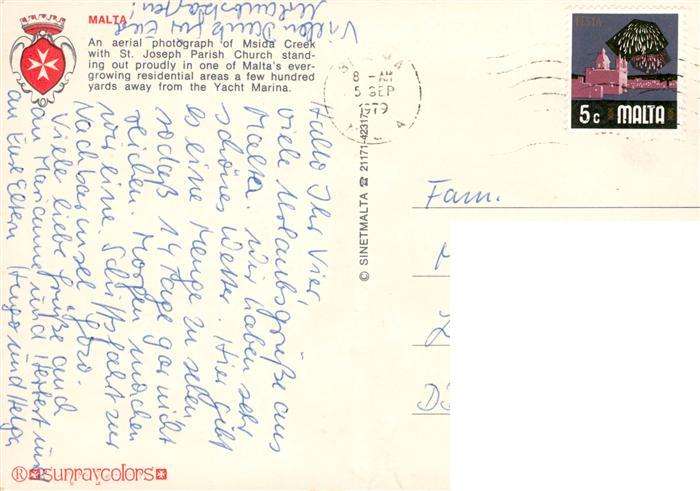 MALTA
An aerial photograph of Msida Creek
with St. Joseph Parish Church stand-
ing out proudly in one of Malta's ever-
growing residential areas a few hundred
yards away from the Yacht Marina.
Vielen Dank für Eure
Urlaubskarten!
Hallo Ihr Vier,
viele Urlaubsgrüße aus
Malta. Wir haben sehr
schönes Wetter. Hier gibt
es eine Menge zu sehen
sodaß 14 Tage gar nicht
reichen. Morgen machen
wir eine Schiffsfahrt zur
Nachbarinsel Gozo.
Viele liebe Grüße auch
an Marianne und Herbert und
an Eure Eltern Hugo und Helga
© SINETMALTA ☎ 21171-42317
8 - AM
5 SEP
1979
FESTA
5c MALTA
Fam.
® sunraycolors